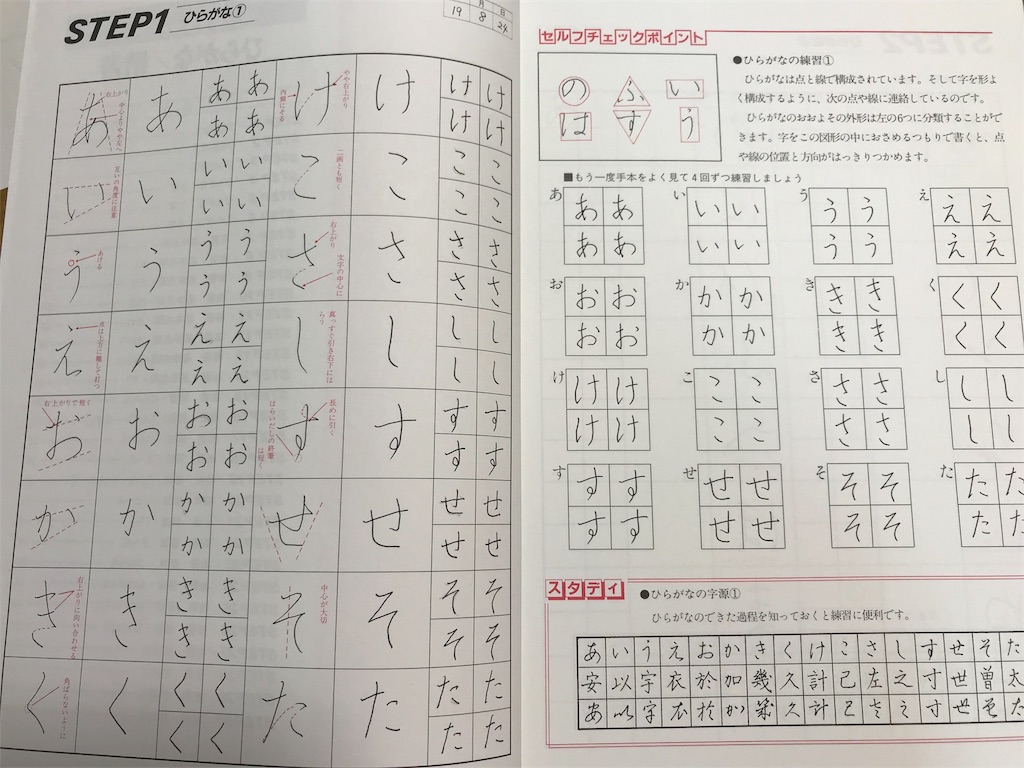 STEP1 ひらがな①
月 日
19 8 24
あ あ あ あ け け け け
あ あ け け
い い い い こ こ こ こ
い い こ こ
う う う う さ さ さ さ
う う さ さ
え え え え し し し し
え え し し
お お お お す す す す
お お す す
か か か か せ せ せ せ
か か せ せ
き き き き そ そ そ そ
き き そ そ
く く く く た た た た
く く た た
右上がり
中心よりやや左へ
やや右上がり
内側になる
互いの角度に注意
二画とも短く
あける
右上がり
文字の中心に
点は上方に離して打つ
真っすぐ引き右下にはらう
右上がりで短く
長めに引く
はらいだしの終筆は短く
右上がりに向い合わせる
中心が大切
角ばらないように
セルフチェックポイント
の ふ い
は す う
●ひらがなの練習①
ひらがなは点と線で構成されています。そして字を形よ
く構成するように、次の点や線に連絡しているのです。
ひらがなのおおよその外形は左の6つに分類することがで
きます。字をこの図形の中におさめるつもりで書くと、点
や線の位置と方向がはっきりつかめます。
■もう一度手本をよく見て4回ずつ練習しましょう
あ ああ い いい う うう え ええ
ああ いい うう ええ
お おお か かか き きき く くく
おお かか きき くく
け けけ こ ここ さ ささ し しし
けけ ここ ささ しし
す すす せ せせ そ そそ た たた
すす せせ そそ たた
スタディ
●ひらがなの字源①
ひらがなのできた過程を知っておくと練習に便利です。
あ い う え お か き く け こ さ し す せ そ た
安 以 宇 衣 於 加 幾 久 計 己 左 之 寸 世 曽 太